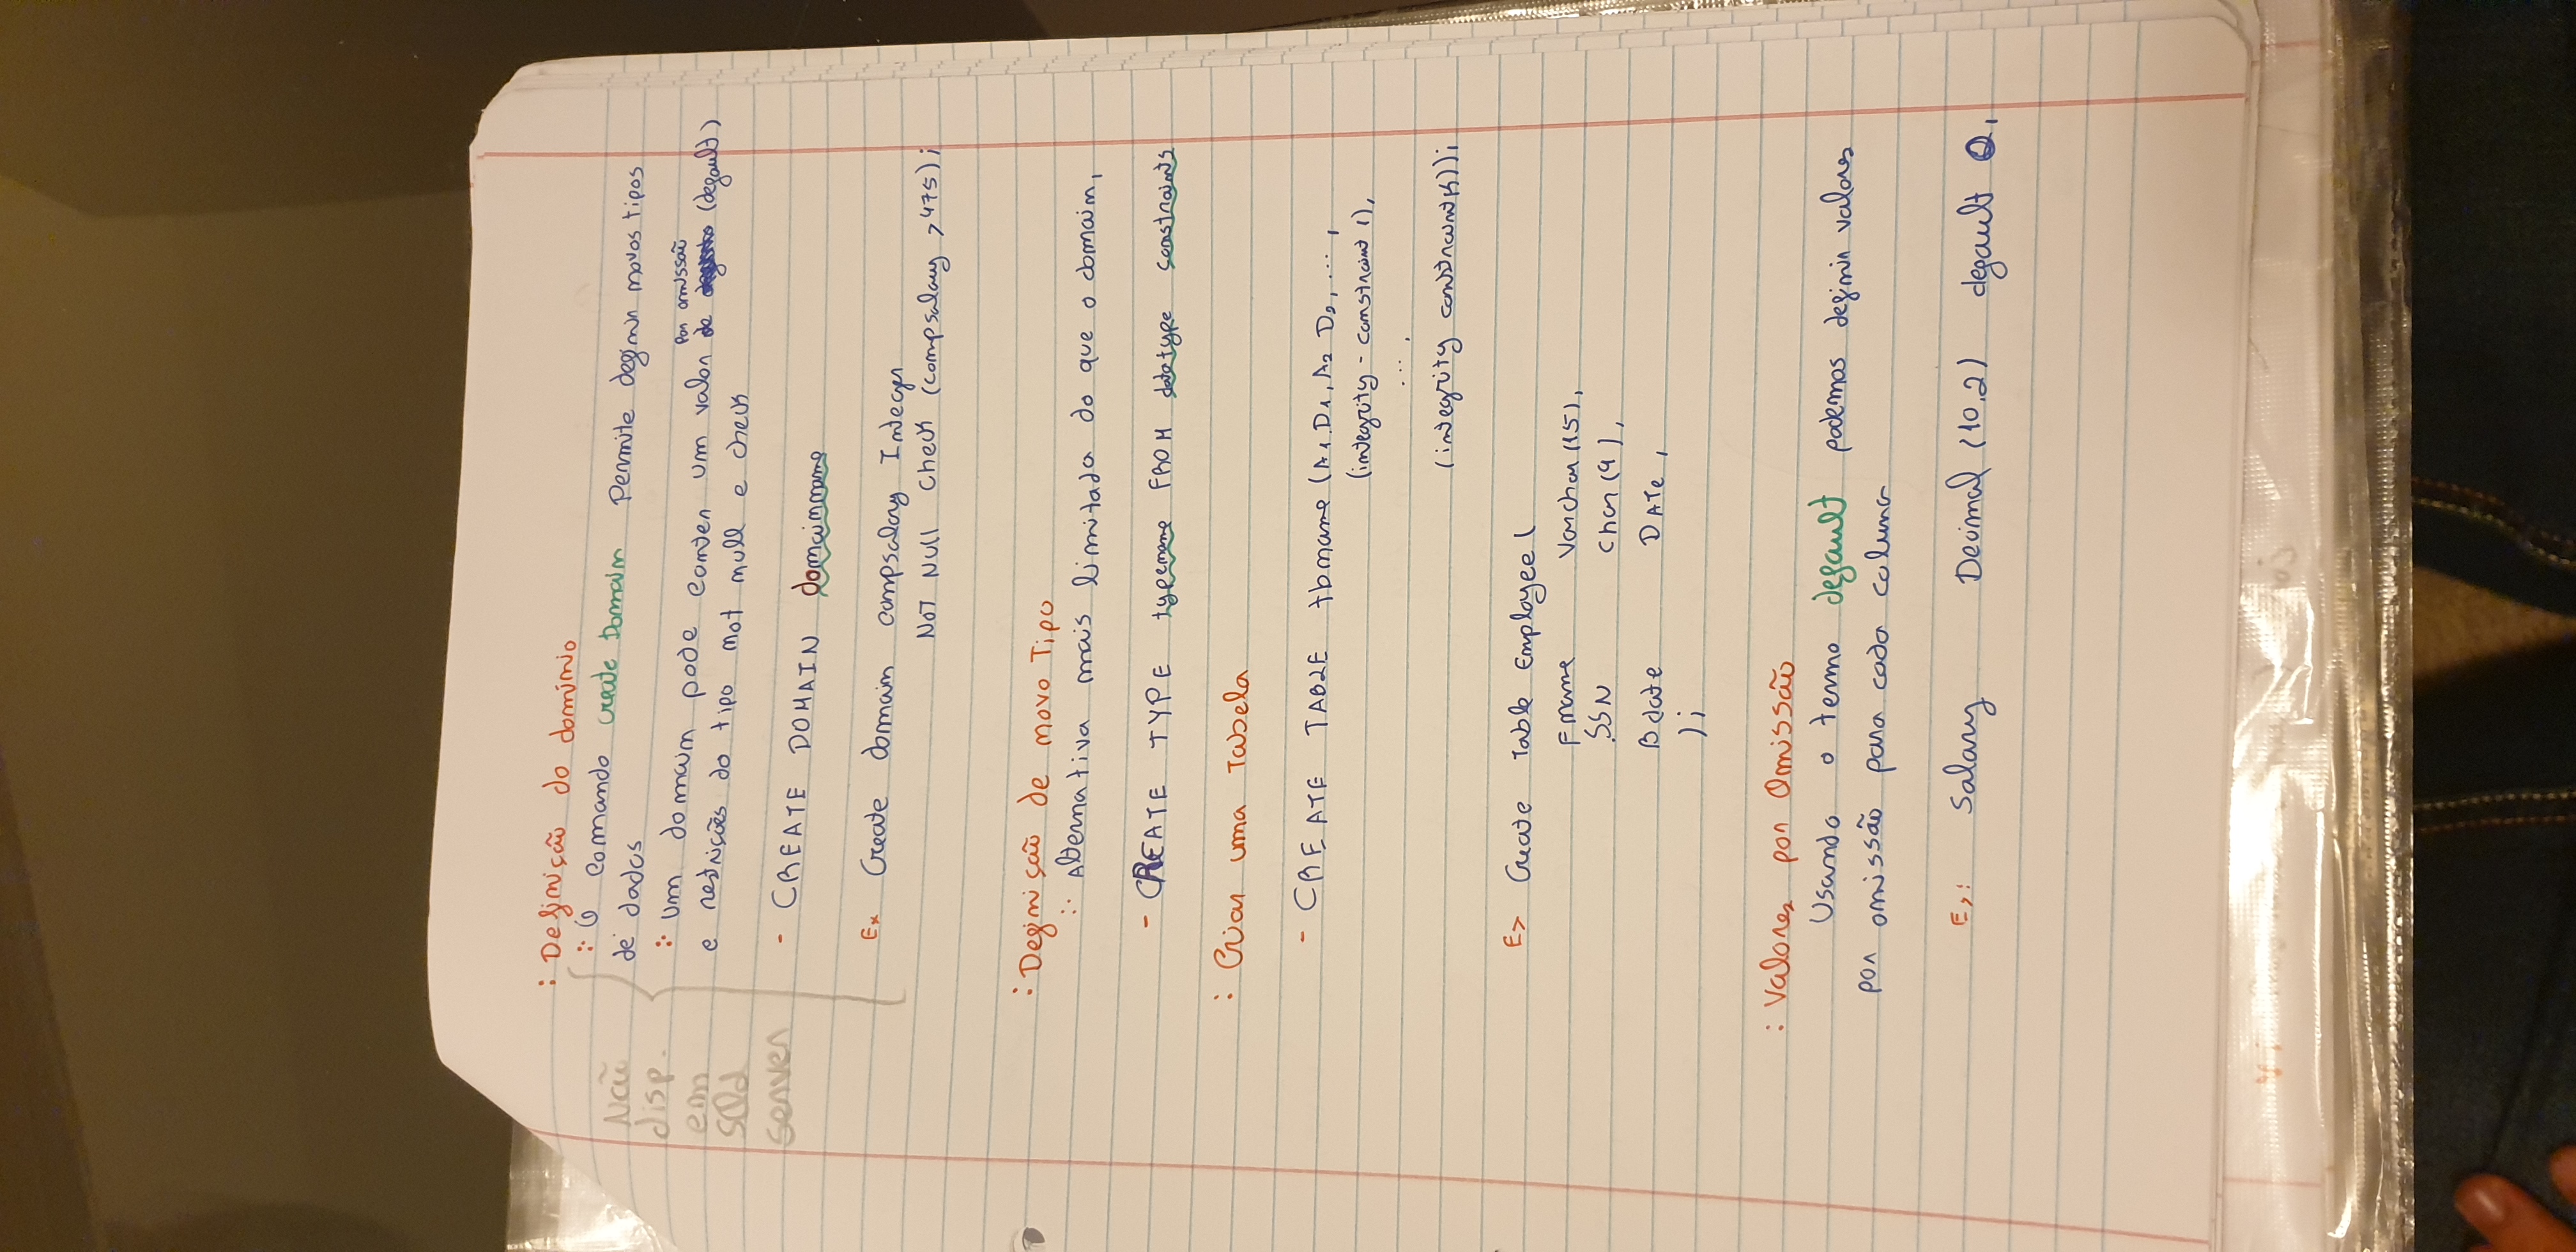 : Definição do domínio
:· O comando create Domain Permite definir novos tipos
de dados
:· um domain pode conter um valor por omissão (default)
e restrições do tipo not null e check
Não
disp.
em
SQL
server
- CREATE DOMAIN domainname
Ex Create domain compsalary Integer
NOT NULL Check (compsalary >475);
: Definição de novo Tipo
:· Alternativa mais limitada do que o domain,
- CREATE TYPE typename FROM datatype constraints
: Criar uma Tabela
- CREATE TABLE tbname (A1 D1, A2 D2, ... ,
(integrity - constraint 1),
... ,
(integrity constraint k));
Ex Create Table Employee (
Fname Varchar (15),
SSN Char (9),
Bdate DATe ,
);
: Valores por Omissão
Usando o termo default podemos definir valores
por omissão para cada coluna
Ex: Salary Decimal (10,2) default 0,